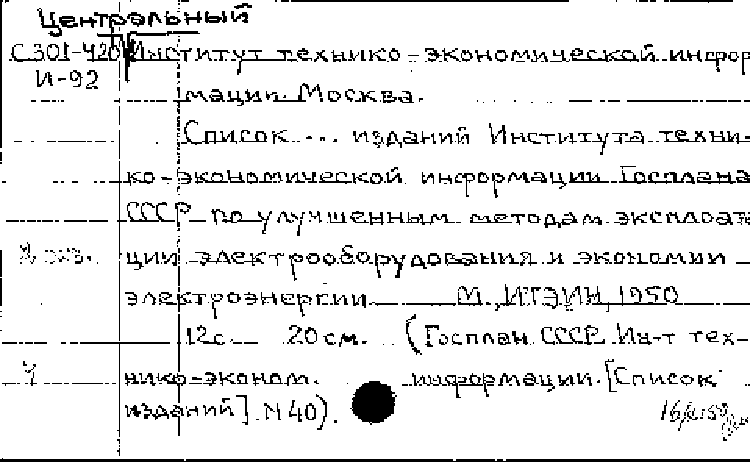 Центральный
С301-420 Институт технико-экономической инфор
И-92
мации. Москва.
Список ... изданий Института техни-
ко-экономической информации Госплана
СССР по улучшенным методам эксплоата
2 экз. ции электрооборудования и экономии
электроэнергии М., ИТЭИН, 1950
12с. 20 см. (Госплан СССР. Ин-т тех-
нико-эконом. информации. [Список
изданий]. N40).